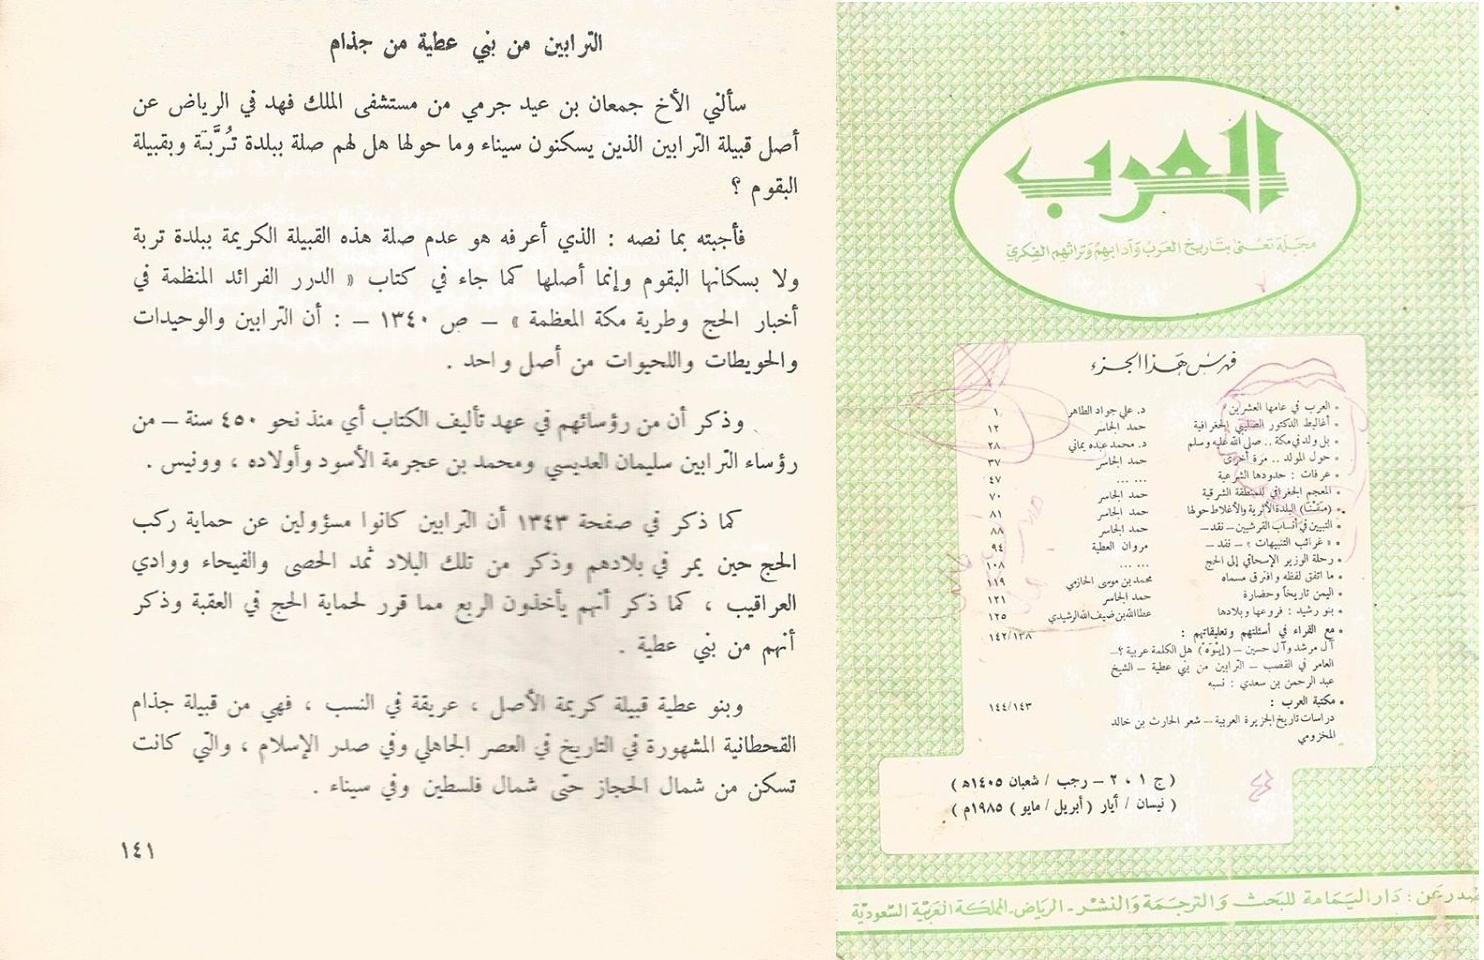 الترابين من بني عطية من جذام
سألني الأخ جمعان بن عيد جرمي من مستشفى الملك فهد في الرياض عن
أصل قبيلة التّرابين الذين يسكنون سيناء وما حولها هل لهم صلة ببلدة تُرَبَة وبقبيلة
البقوم ؟
فأجبته بما نصه : الذي أعرفه هو عدم صلة هذه القبيلة الكريمة ببلدة تربة
ولا بسكانها البقوم وإنما أصلها كما جاء في كتاب « الدرر الفرائد المنظمة في
أخبار الحج وطرية مكة المعظمة » – ص ١٣٤٠ – : أن التّرابين والوحيدات
والحويطات واللحيوات من أصل واحد .
وذكر أن من رؤسائهم في عهد تأليف الكتاب أي منذ نحو ٤٥٠ سنة – من
رؤساء التّرابين سليمان العديسي ومحمد بن عجرمة الأسود وأولاده ، وونيس .
كما ذكر في صفحة ١٣٤٣ أن التّرابين كانوا مسؤولين عن حماية ركب
الحج حين يمر في بلادهم وذكر من تلك البلاد ثمد الحصى والفيحاء ووادي
العراقيب ، كما ذكر أنهم يأخذون الربع مما قرر لحماية الحج في العقبة وذكر
أنهم من بني عطية .
وبنو عطية قبيلة كريمة الأصل ، عريقة في النسب ، فهي من قبيلة جذام
القحطانية المشهورة في التاريخ في العصر الجاهلي وفي صدر الإسلام ، والتي كانت
تسكن من شمال الحجاز حتّى شمال فلسطين وفي سيناء .
١٤١
العرب
مجلة تعنى بتاريخ العرب وآدابهم وتراثهم الفكري
فهرس هذا الجزء
• العرب في عامها العشرين د. علي جواد الطاهر ١
• أغاليط الدكتور الصليبي الجغرافية حمد الجاسر ١٢
• بل ولد في مكة .. صلى الله عليه وسلم د. محمد عبده يماني ٢٨
• حول المولد .. مرة أخرى حمد الجاسر ٣٧
• عرفات : حدودها الشرعية ... ... ٤٧
• المعجم الجغرافي للمنطقة الشرقية حمد الجاسر ٧٠
• البلدة الأثرية والأغلاط حولها حمد الجاسر ٨١
• التبيين في أنساب القرشيين – نقد – حمد الجاسر ٨٨
• « غرائب التنبيهات » – نقد – مروان العطية ٩٤
• رحلة الوزير الإسحاقي إلى الحج ... ... ١٠٨
• ما اتفق لفظه وافترق مسماه محمد بن موسى الحازمي ١١٩
• اليمن تاريخاً وحضارة حمد الجاسر ١٢١
• بنو رشيد : فروعها وبلادها عطا الله بن ضيف الله الرشيدي ١٢٥
• مع القراء في أسئلتهم وتعليقاتهم : ١٤٢/١٣٨
آل مرشد وآل حسين – هل الكلمة عربية ؟ –
العامر في القصب – التّرابين من بني عطية – الشيخ
عبد الرحمن بن سعدي : نسبه
• مكتبة العرب : ١٤٤/١٤٣
دراسات تاريخ الجزيرة العربية – شعر الحارث بن خالد
المخزومي
( ج ١ ، ٢ – رجب / شعبان ١٤٠٥هـ )
( نيسان / أيار ( أبريل / مايو ) ١٩٨٥م )
عن : دار اليمامة للبحث والترجمة والنشر - الرياض - المملكة العربية السعودية